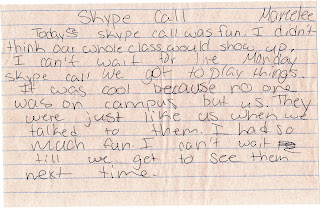 Skype Call Marcelee
Todays skype call was fun. I didn't
think our whole class would show up.
I can't wait for live Monday
skype call we got to play things.
It was cool because no one
was on campus but us. They
were just like us when we
talked to them. I had so
much fun. I can't wait
till we get to see them
next time.